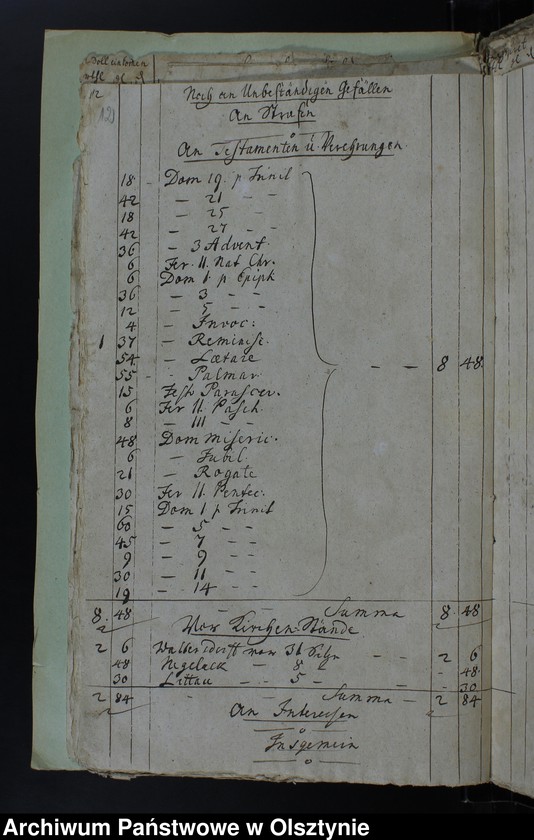 Soll einkommen
rthl gl. ₰
12
Noch an Unbeständigen Gefällen
An Strafen
o
An Testamenten u. Verehrungen.
18 - Dom 19. p Trinit
42 - 21 - -
18 - 25 -
42 - 27 - -
36 - 3 Advent.
6 Fer. II. Nat Chr.
6 Dom 1 p Epiph
36 - 3 - -
12 - 5 - -
4 - Invoc:
1 37 - Reminisc.
54 - Lætare - - 8 48.
55 - Palmar
15 Fest Parascev.
6 Fer II. Pasch.
8 - III - -
48 Dom Miseric.
6 - Jubil.
21 - Rogate
30 Fer II. Pentec:
15 Dom 1 p Trinit
60 - 5 - -
45 - 7 - -
9 - 9 - -
30 - 11 - -
19 - 14 - -
8. 48 Summa 8. 48
Vor Kirchen-Stände
2 6 Waltersdorff von 31 - 2 6
48 - 8 - 48.
30 Littau - 5 - - 30
2 84 - Summa - 2 84
An Interessen
o
Insgemein
o
Archiwum Państwowe w Olsztynie